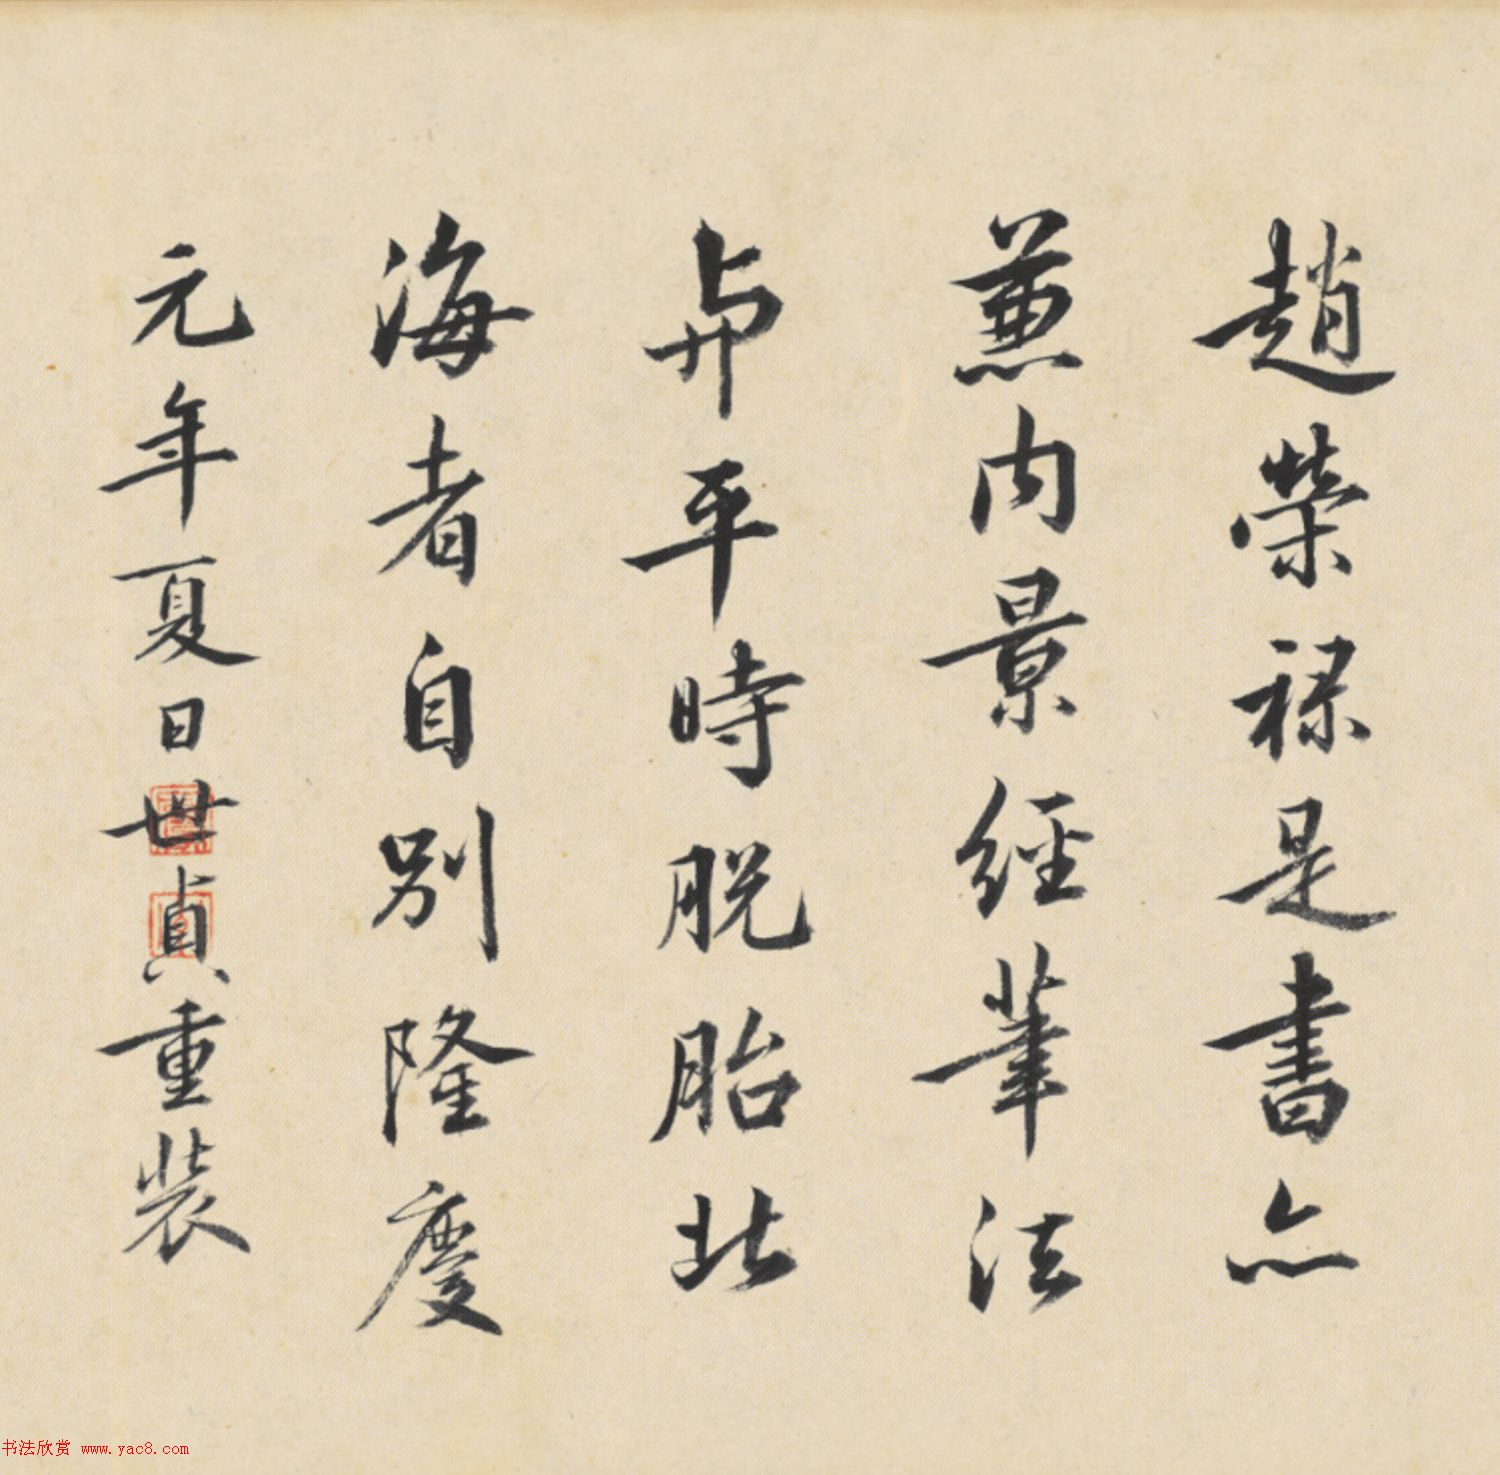 趙榮祿是書亦
兼内景經筆法
與平時脱胎北
海者自别隆慶
元年夏日世貞重裝
书法欣赏 www.yac8.com